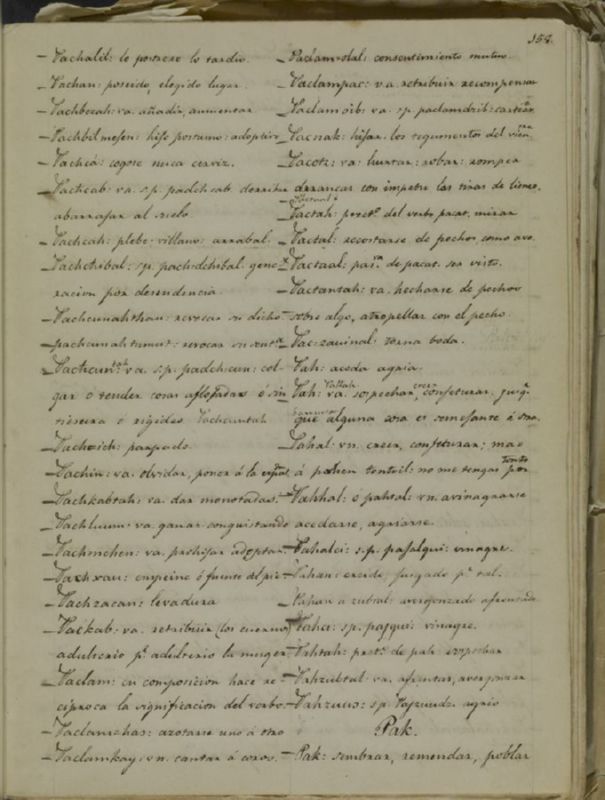 158.
– Pachalil: lo postrero lo tardio.
– Pachan: poseido, elegido lugar.
– Pachbezah: va. añadir, aumentar
– Pachbil mehen: hijo postumo: adoptivo
– Pachcá: cogote nuca cerviz.
– Pachcab: va. s.p. padchcab. derribar
abarrajar al suelo
– Pachcah: plebe: villano: arrabal.
– Pachchibal: s.p. pachdchibal. gene-
racion por desendencia
– Pachcunahthan: revocar su dicho
pachcunahtumut: revocar su sent.ª
– Pachcuntah: va. s.p. padchcun: col-
gar o tender cosas aflojadas ó sin
tiesura ó rigides Pachcuntah
– Pachoich: parpado
– Pachin: va. olvidar, poner á la espal.
– Pachkabtah: va. dar manotadas.
– Pachluum: va. ganar conquistando
– Pachmehen: va. prohijar adoptar.
– Pachxau: empeine ó fuente del pie
– Pachzacan: levadura
– Packab: va. retribuir (los cuernos)
adulterio p.r adulterio la muger
– Paclam: en composicion hace re-
ciproca la significacion del verbo.
– Paclamchas: azotarse uno á otro
– Paclamkay: vn. cantar á coros.
– Paclam olal: consentimiento mutuo.
– Paclampac: va. retribuir recompensar
– Paclamɔib: va. s.p. paclamdzib: cartear.
– Pacnak: hijar. los tegumentos del vien.tre
– Pacotz: va: hurtar: robar: romper
arrancar con impetu las tiras de lienzo.
– Pactah: pret.º del verbo pacat. mirar
– Pactal: recostarse de pechos como ave.
– Pactaal: pas.va de pacat. ser visto.
– Pactantah: va. hecharse de pechos
sobre algo, atropellar con el pecho.
– Pac-zauinal: torna boda.
– Pah: aceda agria.
– Pah: Pahtah va. sospechar, creer conjeturar. juzg.r
que alguna cosa es semejante á otra.
– Pahal: vn. creer, conjeturar; ma-
á pahen tontoil: no me tengas por tonto
– Pahhal: ó pahtal: vn. avinagrarse
acedarse, agriarse.
– Pahalci: s.p. pajalqui: vinagre.
– Pahan: creido, juzgado p.r tal.
– Pahan u zubtal: avergonzado afrentado
– Pahci: s.p. pajqui: vinagre.
– Pahtah: pret.º de pah sospechar
– Pahzubtal: va. afrentar, avergonzar
– Pahzuus: s.p. Pajzuudz. agrio
Pak.
– Pak: sembrar, remendar, poblar